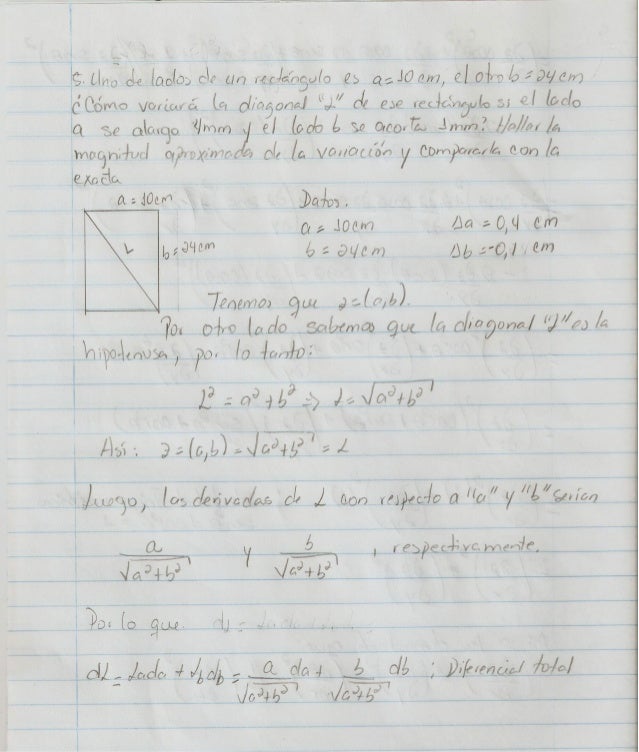 5. Uno de lados de un rectángulo es a=10cm, el otro b=24cm
¿Cómo variará la diagonal "L" de ese rectángulo si el lado
a se alarga 4mm y el lado b se acorta 1mm? Hallar la
magnitud aproximada de la variación y compararla con la
exacta
a=10cm
Datos.
a = 10cm Δa = 0,4 cm
L b=24cm b = 24cm Δb =-0,1 cm
Tenemos que z=(a,b).
Por otro lado sabemos que la diagonal "L" es la
hipotenusa, por lo tanto:
L² = a² + b² => L = √a²+b²
Así: z=(a,b) = √a²+b² = L
Luego, las derivadas de L con respecto a "a" y "b" serían
a/√a²+b² y b/√a²+b² , respectivamente.
Por lo que:
dL = Lada + Lbdb = a/√a²+b² da + b/√a²+b² db ; Diferencial total